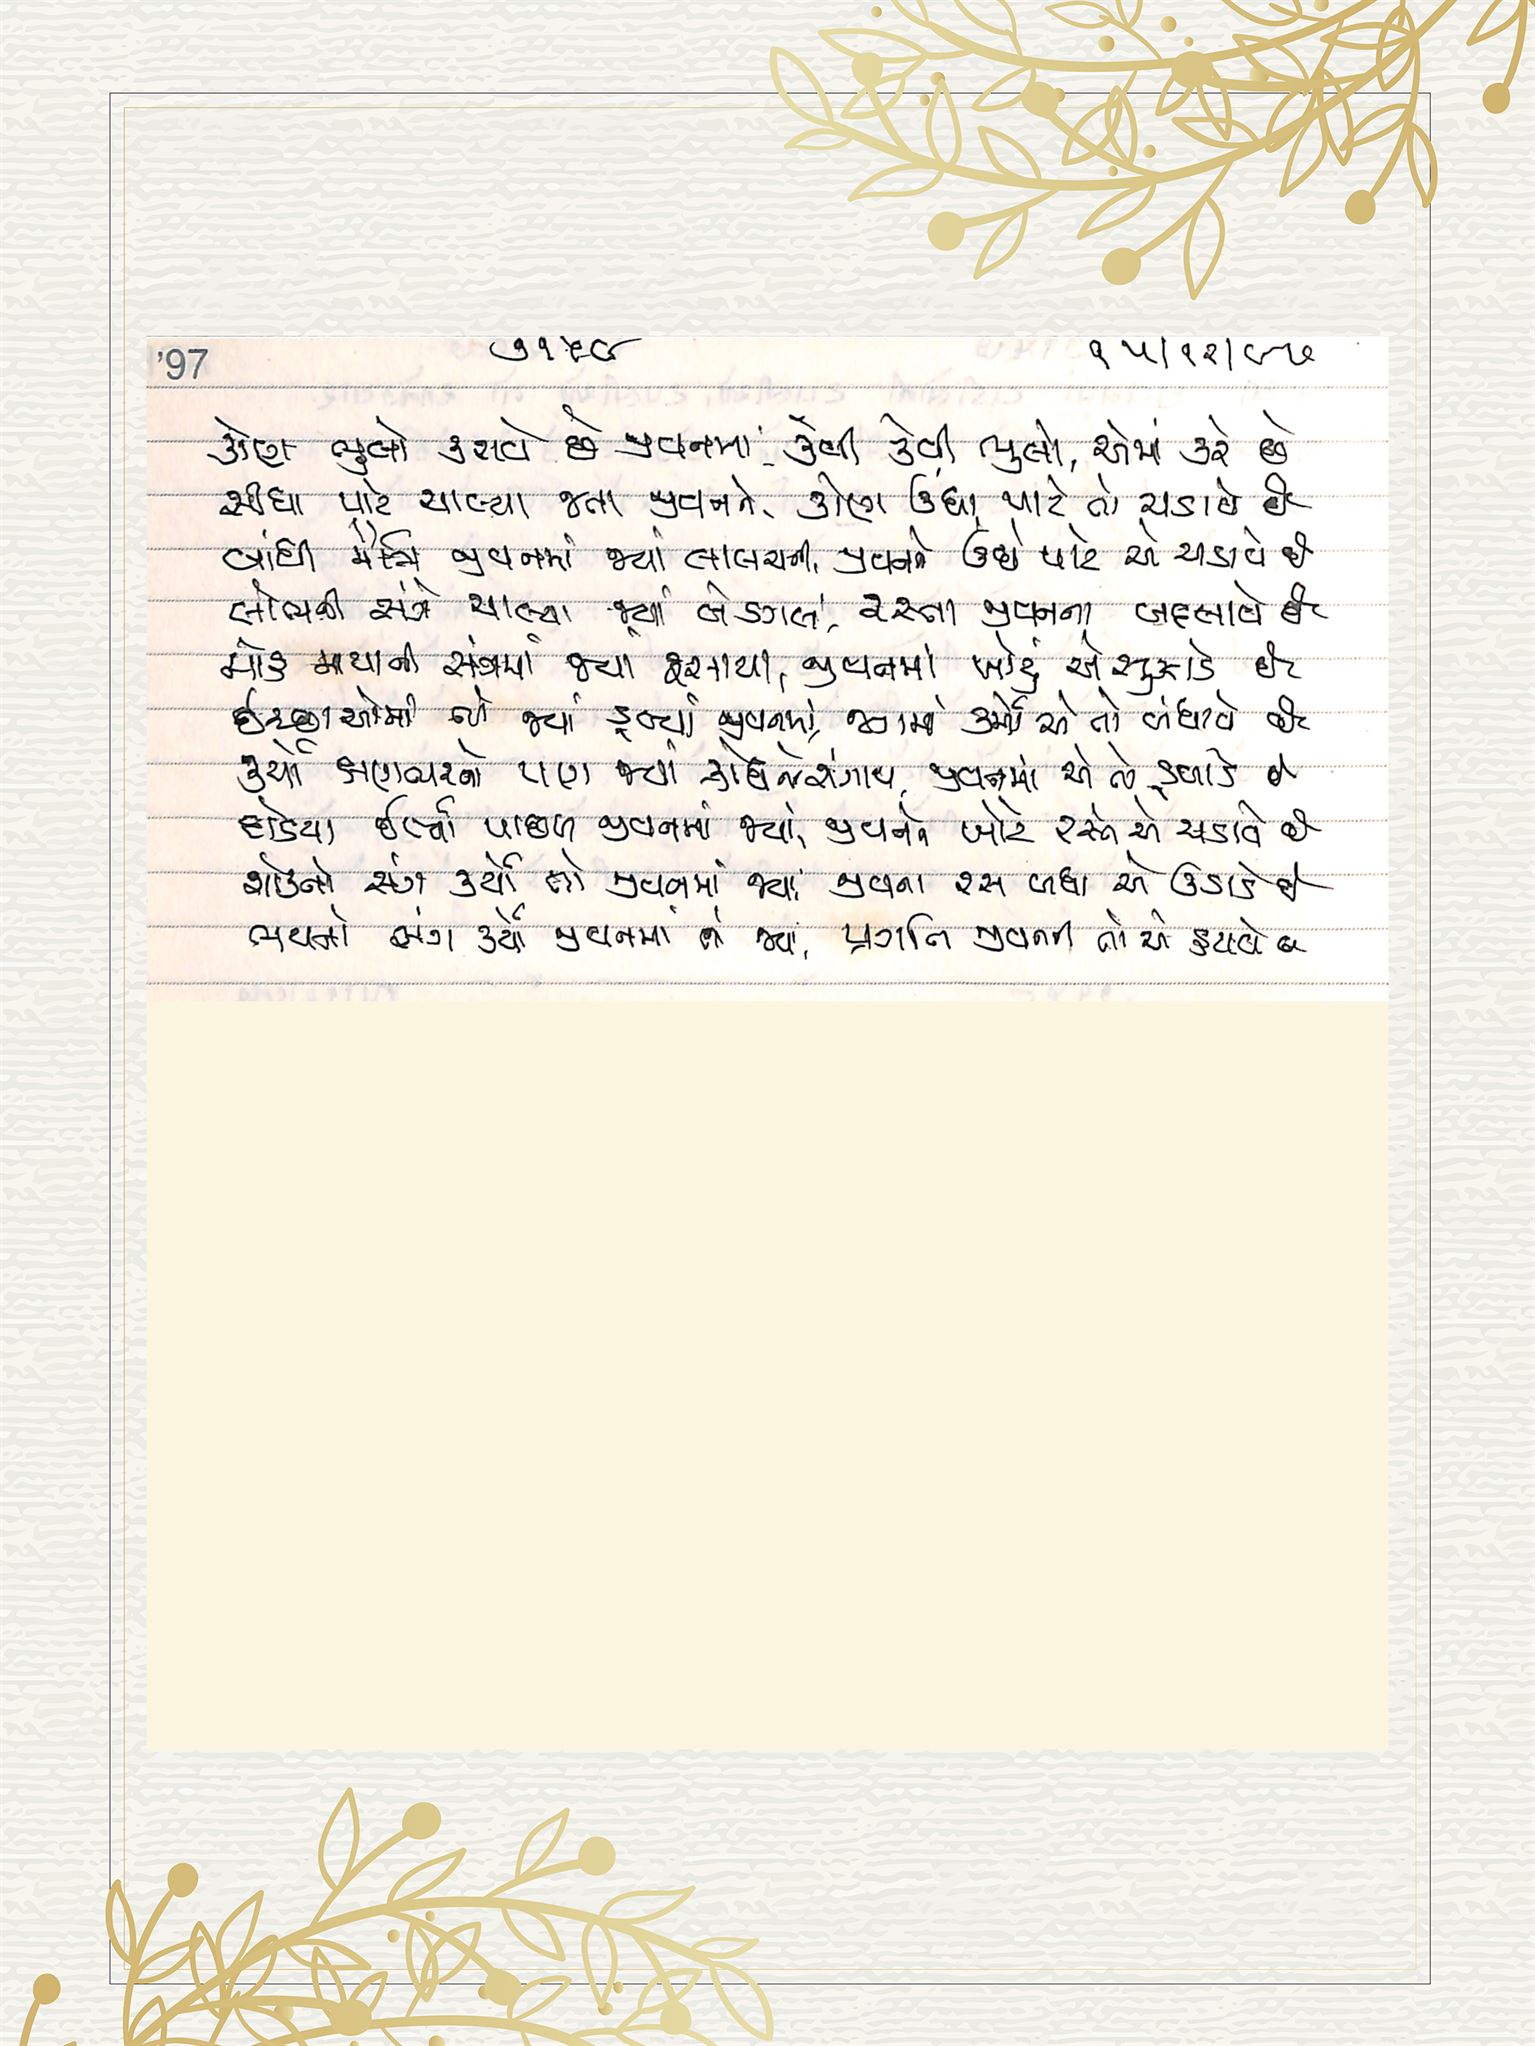 '97 ૭૧૫૯ ૧૫/૧૨/૯૭
કોણ ભુલો કરાવે છે જીવનમાં, કેવી કેવી ભુલો, એમાં કરે છે
સીધા પાટે ચાલ્યા જતા જીવનને, કોણ ઉંધા પાટે તો ચડાવે છે
બાંધી મૈત્રિ જીવનમાં જ્યાં લાલચની, જીવનને ઉંધે પાટે એ ચડાવે છે
લોભની સંગે ચાલ્યા જ્યાં બે ડગલાં, રસ્તા જીવનના બદલાવે છે
મોહ માયાની સંગમાં જ્યાં ફસાયા, જીવનમાં ખોટું એ સુઝાડે છે
ઈચ્છાઓમાં જો જ્યાં ડૂબ્યાં જીવનમાં, જગમાં કર્મો એ તો બંધાવે છે
કર્યો ક્ષણભરનો પણ જ્યાં ક્રોધને સંગાથ, જીવનમાં એ તો ડુબાડે છે
દોડયા ઈર્ષ્યા પાછળ જીવનમાં જ્યાં, જીવનને ખોટે રસ્તે એ ચડાવે છે
શોકનો સંગ કર્યો તો જીવનમાં જ્યાં જીવના રસ બધા એ ઉડાડે છે
ભયનો સંગ કર્યો જીવનમાં તો જ્યાં, પ્રગતિ જીવનની તો એ રૂંધાવે છે